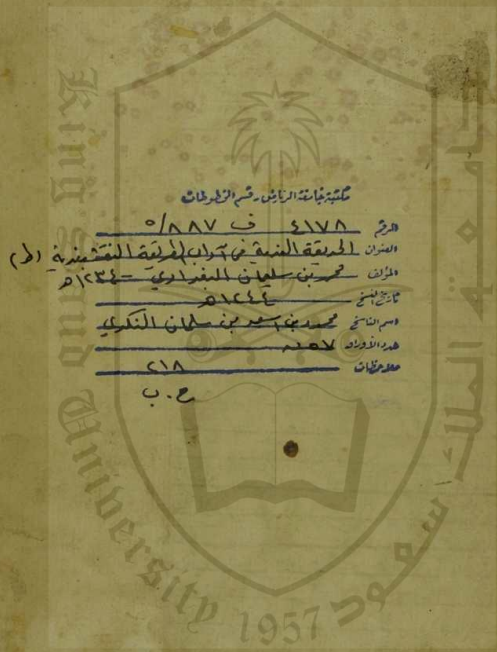 مكتبة جامعة الرياض - قسم المخطوطات
الرقم ٤١٧٨ ف ٥/٨٨٧
العنوان الحديقة الندية في آداب الطريقة النقشبندية (ط)
المؤلف محمد بن سليمان البغدادي - ١٢٣٤هـ
تاريخ النسخ ١٢٤٤هـ
اسم الناسخ محمد بن اسعد بن سلمان
عدد الأوراق ٥٧
ملاحظات ٢١٨
ح . ب
King Saud University 1957
جامعة الملك سعود